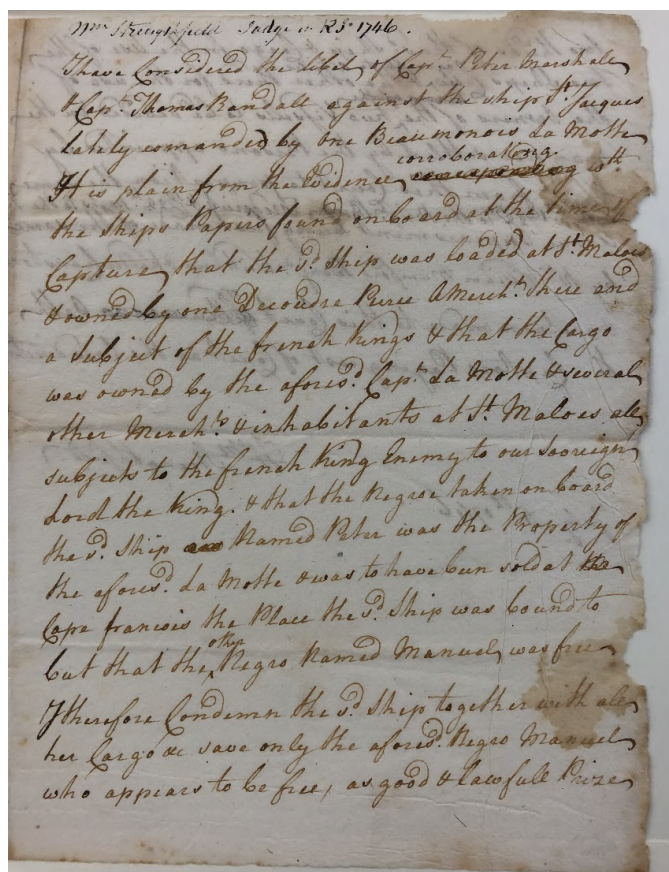 Wm Strengthfield Judge in R I 1746.
I have Considered the libel, of Capt. Peter Marshall
& Capt. Thomas Randall against the ship St. Jacques
lately comanded by one Beaumonois La Motte
corroborating
It is plain from the Evidence, wth
the Ships Papers found on board at the time of
Capture, that the sd. Ship was loaded at St. Maloes
& owned by one Decoudre Puree a Mercht. there and
a subject of the french Kings & that the Cargo
was owned by the aforesd. Capt. La Motte & several
other Merchts. & inhabitants at St. Maloes all
subjects to the french King Enemy to our Sovreign
Lord the King. & that the Negroe taken on board
the sd. Ship Named Peter was the Property of
the aforesd. La Motte & was to have been sold at
Cape francois the Place the sd. Ship was bound to
other
but that the Negro Named Manuel, was free
I therefore Condemn the sd. Ship together with all
her Cargo &c save only the aforesd. Negro Manuel
who appears to be free, as good & lawfull Prize